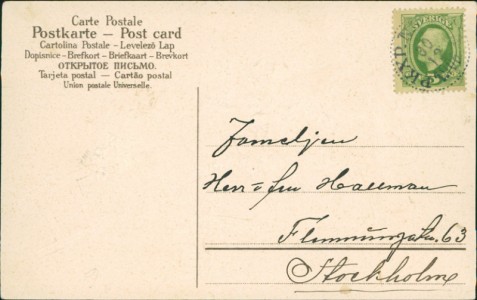 Carte Postale
Postkarte — Post card
Cartolina Postale - Levelező Lap
Dopisnice - Brefkort - Briefkaart - Brevkort
ОТКРЫТОЕ ПИСЬМО.
Tarjeta postal — Cartão postal
Union postale Universelle.
SVERIGE
Familjen
Herr o fru Hallman
63
Stockholm